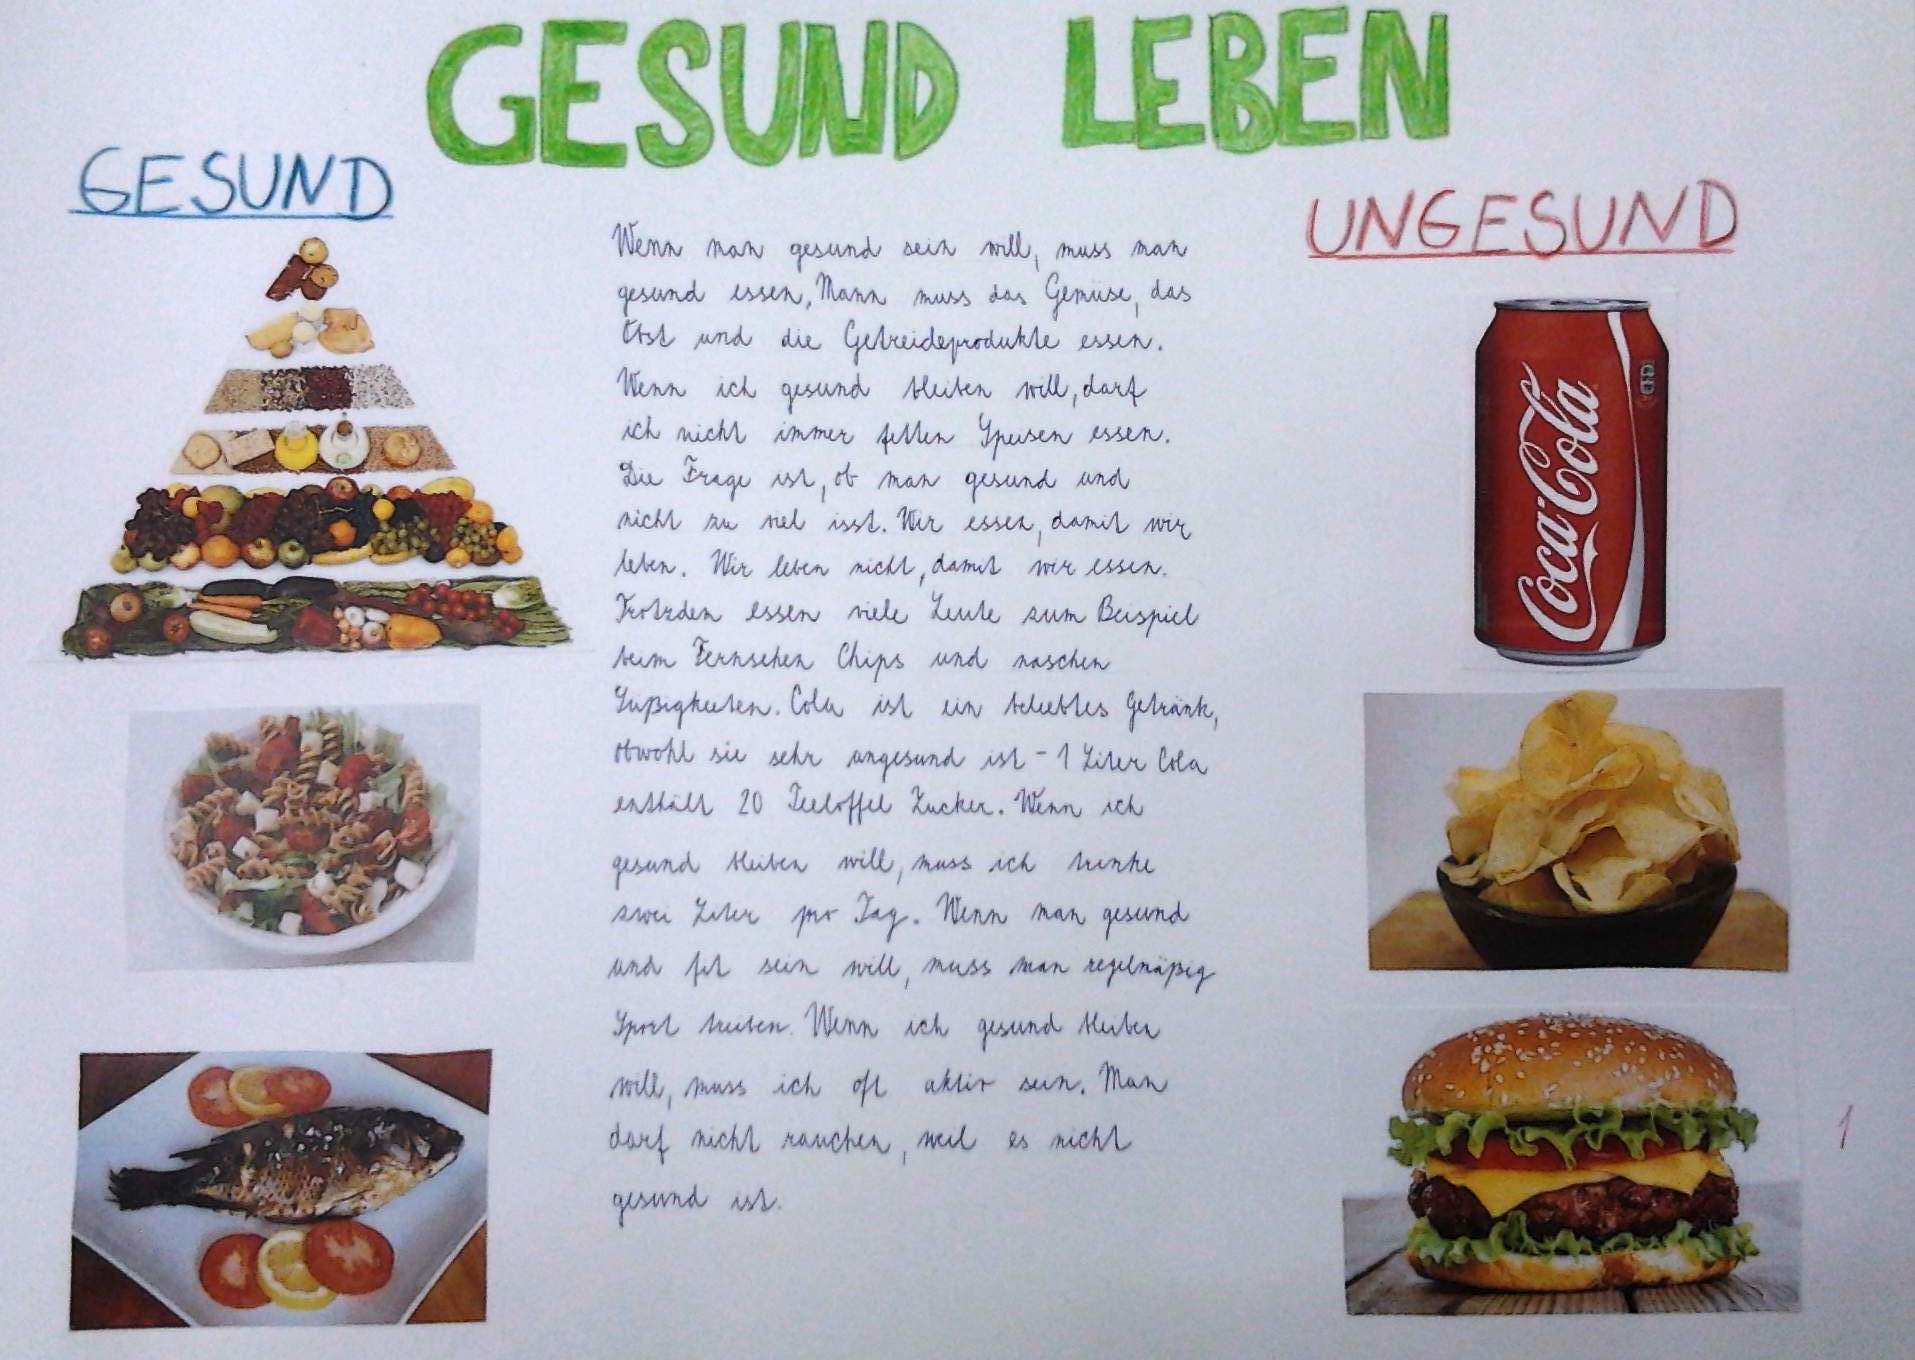 GESUND LEBEN
GESUND
Wenn man gesund sein will, muss man
gesund essen, Mann muss das Gemüse, das
Obst und die Getreideprodukte essen.
Wenn ich gesund bleiben will, darf
ich nicht immer fetten Speisen essen.
Die Frage ist, ob man gesund und
nicht zu viel isst. Wir essen, damit wir
leben. Wir leben nicht, damit wir essen.
Trotzdem essen viele Leute zum Beispiel
beim Fernsehen Chips und naschen
Süßigkeiten. Cola ist ein beliebtes Getränk,
obwohl sie sehr ungesund ist - 1 Liter Cola
enthält 20 Teeloffel Zucker. Wenn ich
gesund bleiben will, muss ich trinke
zwei Liter pro Tag. Wenn man gesund
und fit sein will, muss man regelmäßig
Sport treiben. Wenn ich gesund bleiben
will, muss ich oft aktiv sein. Man
darf nicht rauchen, weil es nicht
gesund ist.
UNGESUND
Coca-Cola
1